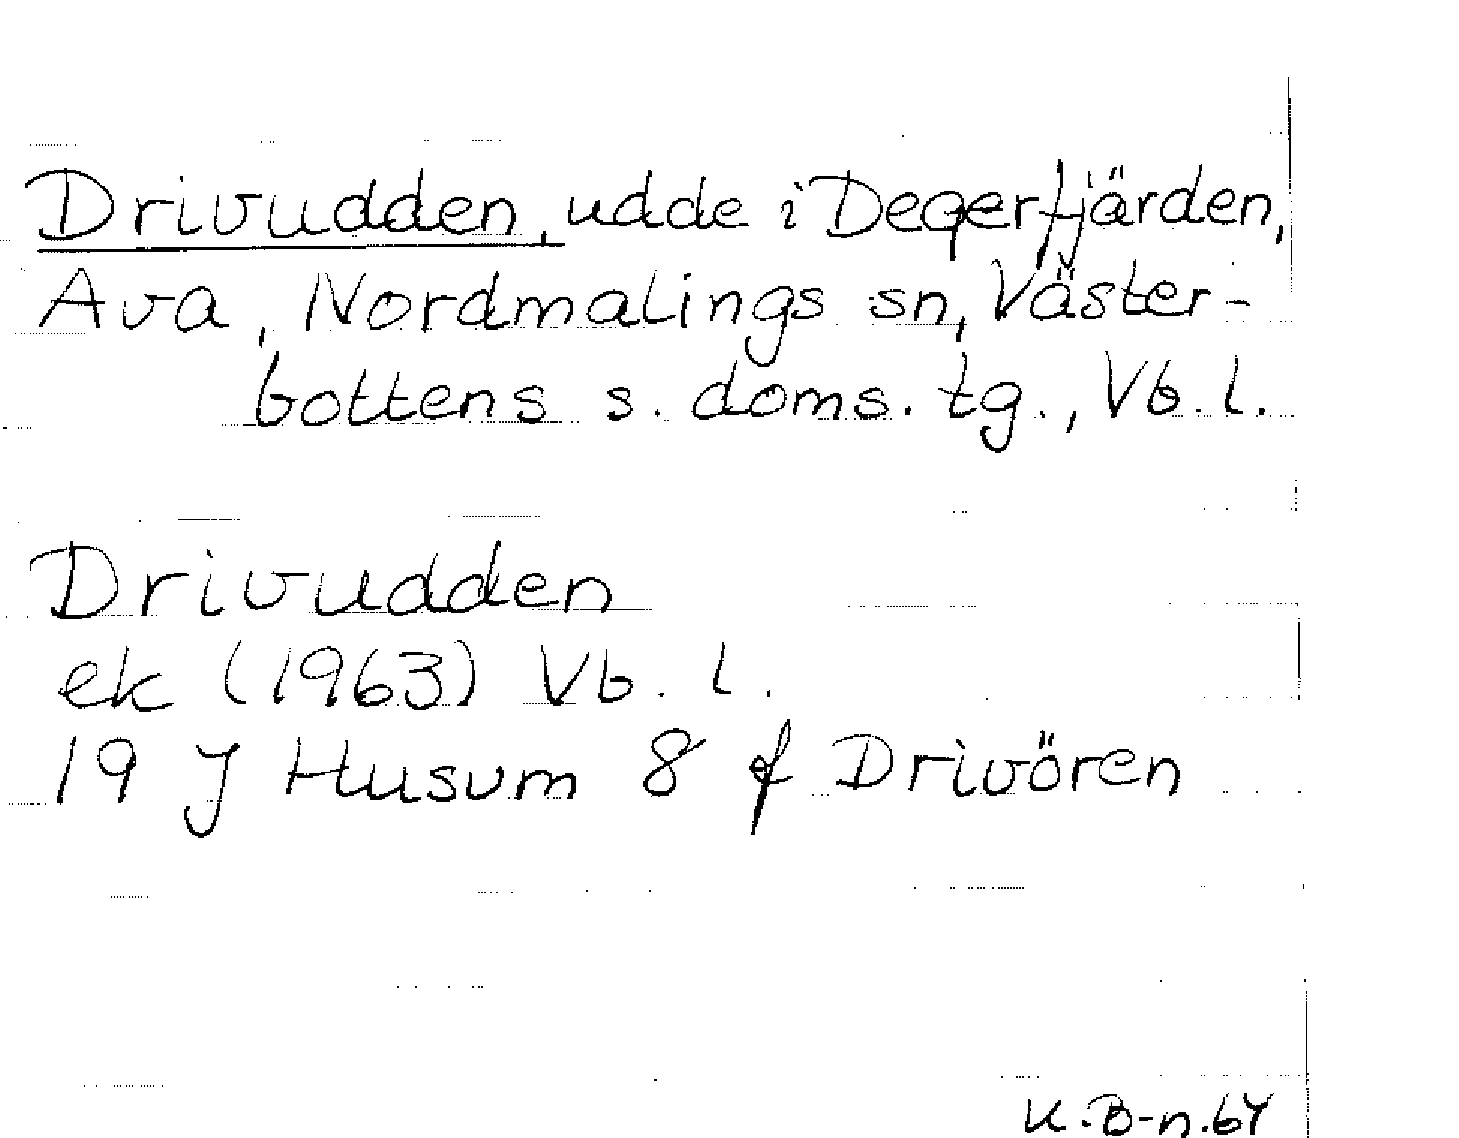 Drivudden, udde i Degerfjärden,
Ava, Nordmalings sn, Väster-
bottens s. doms. tg., Vb. l.
Drivudden
ek (1963) Vb. l.
19 J Husum 8 f Drivören
K.B-n.64